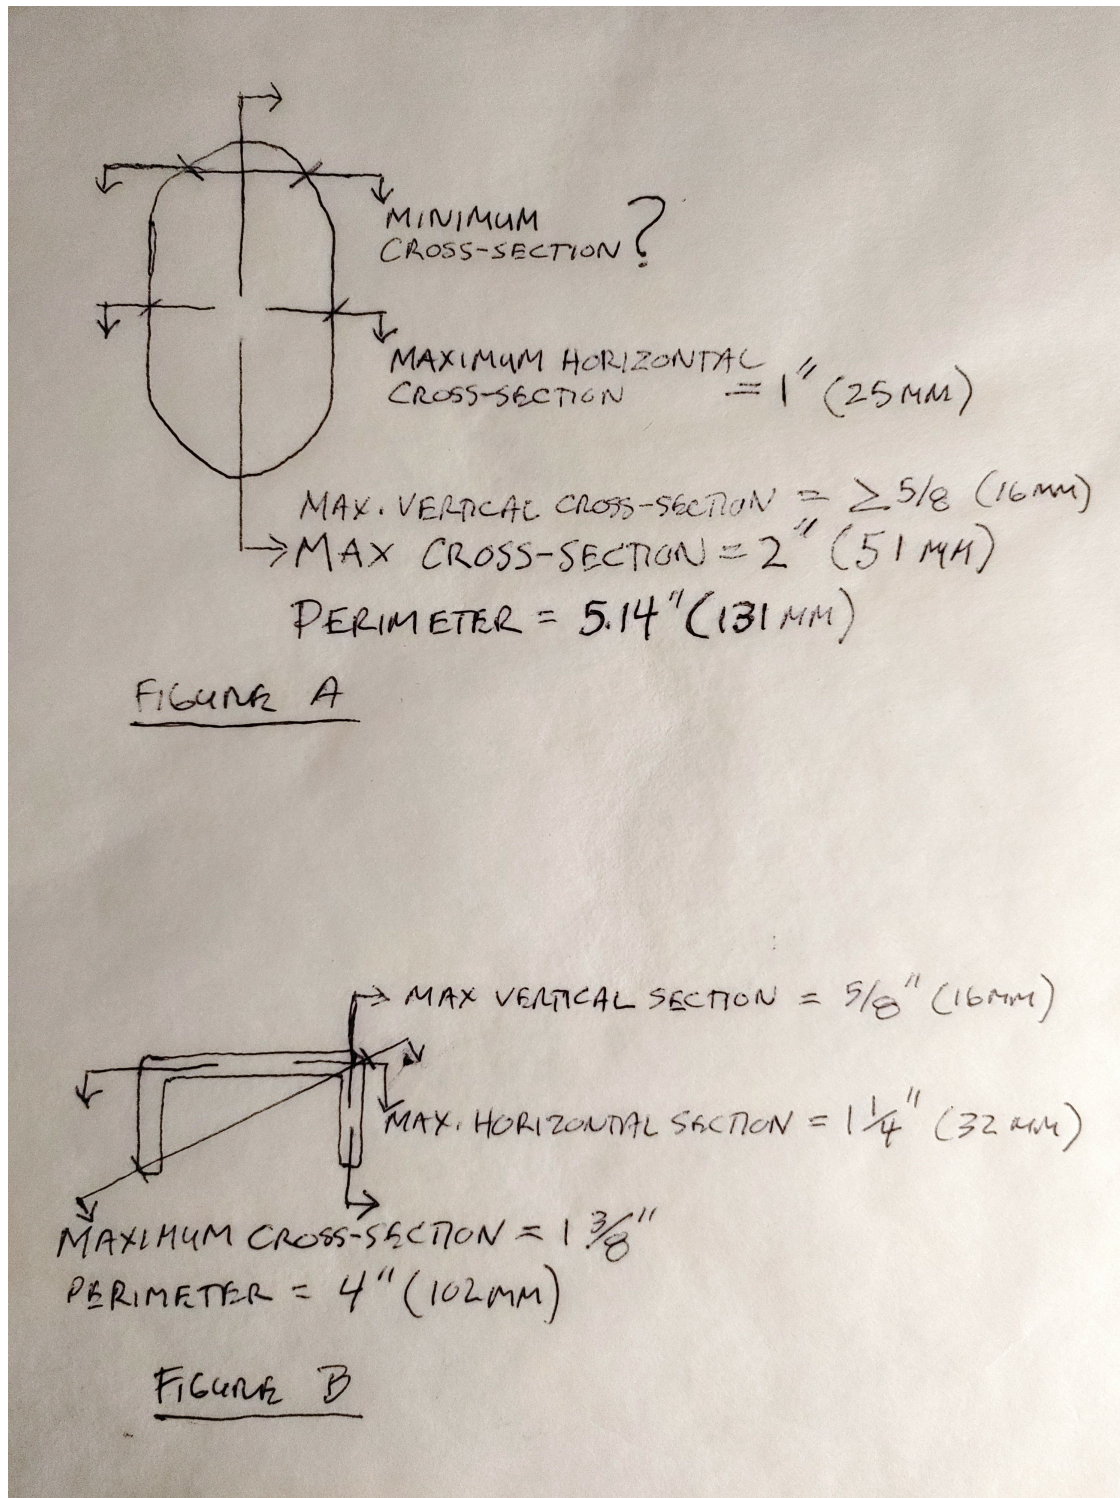 MINIMUM
CROSS-SECTION ?
MAXIMUM HORIZONTAL
CROSS-SECTION = 1" (25MM)
MAX. VERTICAL CROSS-SECTION = ≥ 5/8 (16MM)
MAX CROSS-SECTION = 2" (51 MM)
PERIMETER = 5.14" (131 MM)
FIGURE A
MAX VERTICAL SECTION = 5/8" (16MM)
MAX. HORIZONTAL SECTION = 1 1/4" (32 MM)
MAXIMUM CROSS-SECTION = 1 3/8"
PERIMETER = 4" (102MM)
FIGURE B